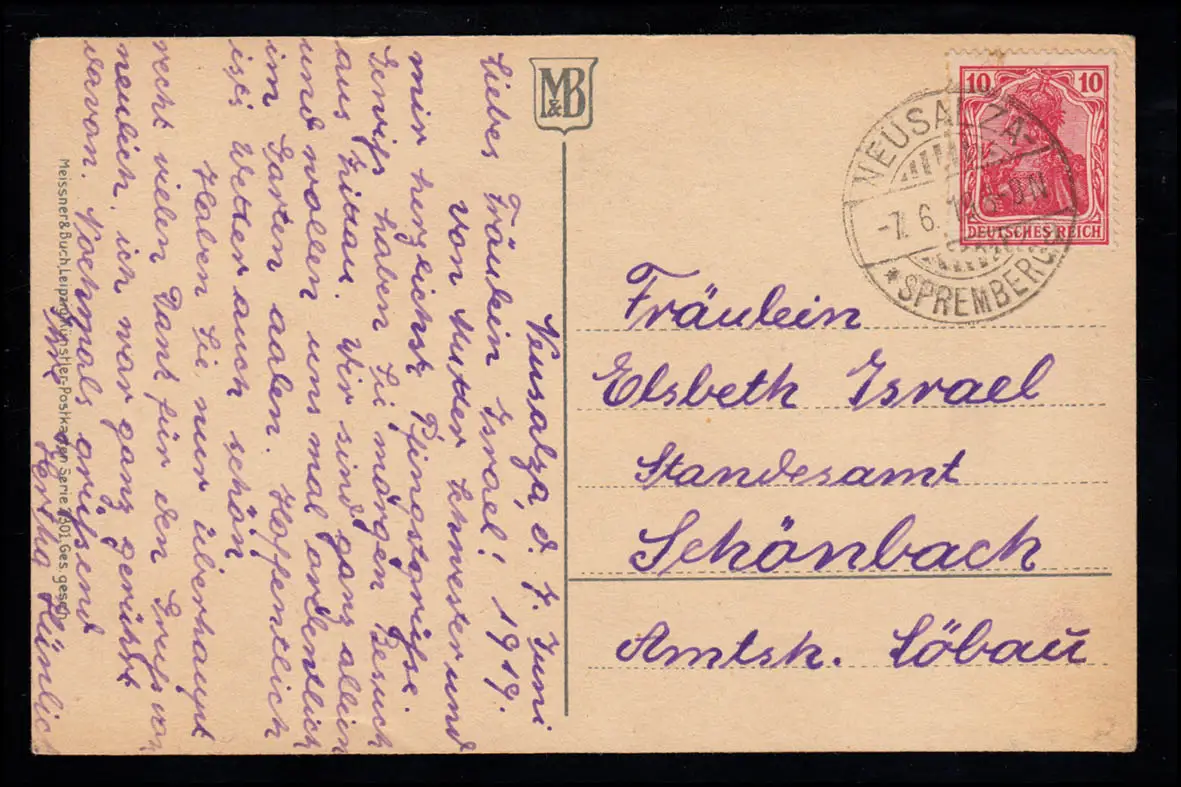 Neusalza, d. 7. Juni
1919.
Liebes Fräulein Israel!
Von Mutter Schwester und
mir herzlichst Pfingstgrüße.
Gewiß haben Sie morgen Besuch
aus Zittau. Wir sind ganz allein
und wollen uns mal ordentlich
im Garten aalen. Hoffentlich
ist's Wetter auch schön
Haben Sie nur überhaupt
recht vielen Dank für den Gruß von
neulich, ich war ganz gerührt
davon. Nochmals grüßend
Ihre Hertha Hünlich
Meissner & Buch, Leipzig Künstler-Postkarten Serie 2301. Ges. gesch.
M&B
10 10
DEUTSCHES REICH
NEUSALZA-
-7. 6. 19
* SPREMBERG
Fräulein
Elsbeth Israel
Standesamt
Schönbach
Amtsh. Löbau